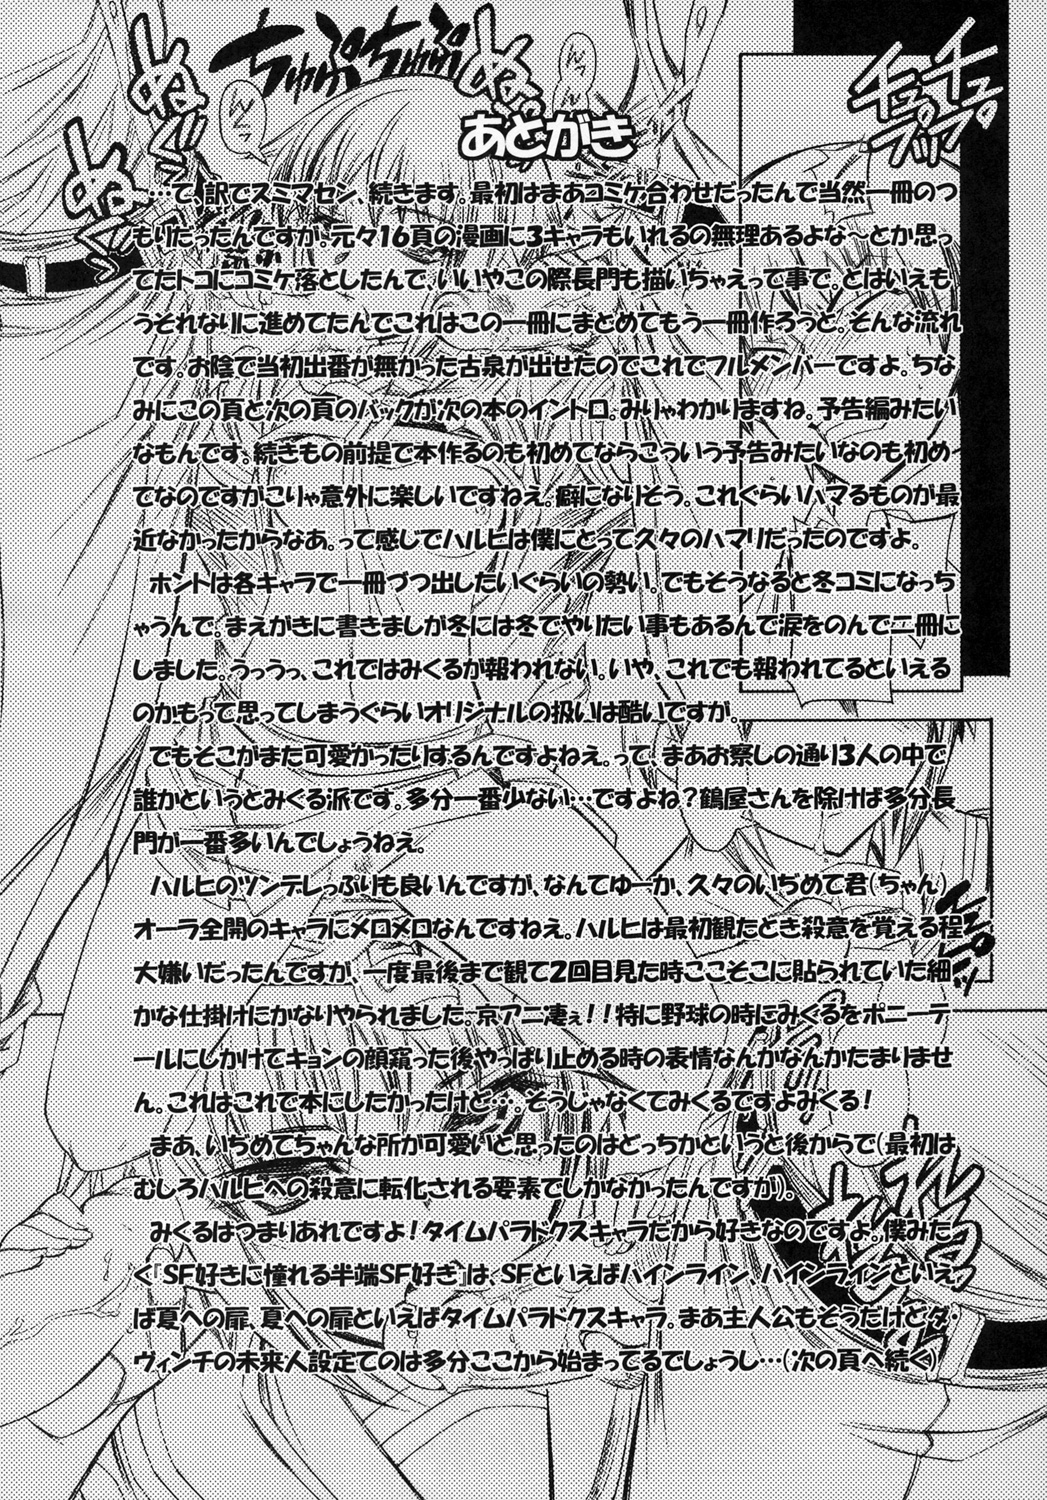 あとがき
…て、訳でスミマセン、続きます。最初はまあコミケ合わせだったんで当然一冊のつ
もりだったんですが。元々16頁の漫画に3キャラもいれるの無理あるよな～とか思っ
てたトコにコミケ落としたんで、いいやこの際長門も描いちゃえって事で。とはいえも
うそれなりに進めてたんでこれはこの一冊にまとめてもう一冊作ろうと。そんな流れ
です。お陰で当初出番が無かった古泉が出せたのでこれでフルメンバーですよ。ちな
みにこの頁と次の頁のバックが次の本のイントロ。みりゃわかりますね。予告編みたい
なもんです。続きもの前提で本作るのも初めてならこういう予告みたいなのも初め
てなのですがこりゃ意外に楽しいですねえ。癖になりそう。これぐらいハマるものが最
近なかったからなあ。って感じでハルヒは僕にとって久々のハマリだったのですよ。
ホントは各キャラで一冊づつ出したいぐらいの勢い。でもそうなると冬コミになっち
ゃうんで。まえがきに書きましが冬には冬でやりたい事もあるんで涙をのんで二冊に
しました。うっうっ、これではみくるが報われない。いや、これでも報われてるといえる
のかもって思ってしまうぐらいオリジナルの扱いは酷いですが。
でもそこがまた可愛がったりするんですよねえ。って、まあお察しの通り3人の中で
誰かというとみくる派です。多分一番少ない…ですよね？鶴屋さんを除けば多分長
門が一番多いんでしょうねえ。
ハルヒのツンデレっぷりも良いんですが、なんてゆーか、久々のいぢめて君(ちゃん)
オーラ全開のキャラにメロメロなんですねえ。ハルヒは最初観たとき殺意を覚える程
大嫌いだったんですが、一度最後まで観て2回目見た時ここそこに貼られていた細
かな仕掛けにかなりやられました。京アニ凄ぇ！！特に野球の時にみくるをポニーテ
ールにしかけてキョンの顔窺った後やっぱり止める時の表情なんかなんかたまりませ
ん。これはこれで本にしたかったけど…。そうじゃなくてみくるですよみくる！
まあ、いぢめてちゃんな所が可愛いと思ったのはどっちかというと後からで(最初は
むしろハルヒへの殺意に転化される要素でしかなかったんですが)。
みくるはつまりあれですよ！タイムパラドクスキャラだから好きなのですよ。僕みた
く『SF好きに憧れる半端SF好き』は、SFといえばハインライン、ハインラインといえ
ば夏への扉、夏への扉といえばタイムパラドクスキャラ。まあ主人公もそうだけどダ・
ヴィンチの未来人設定てのは多分ここから始まってるでしょうし…(次の頁へ続く)
ちゅぷちゅぷ